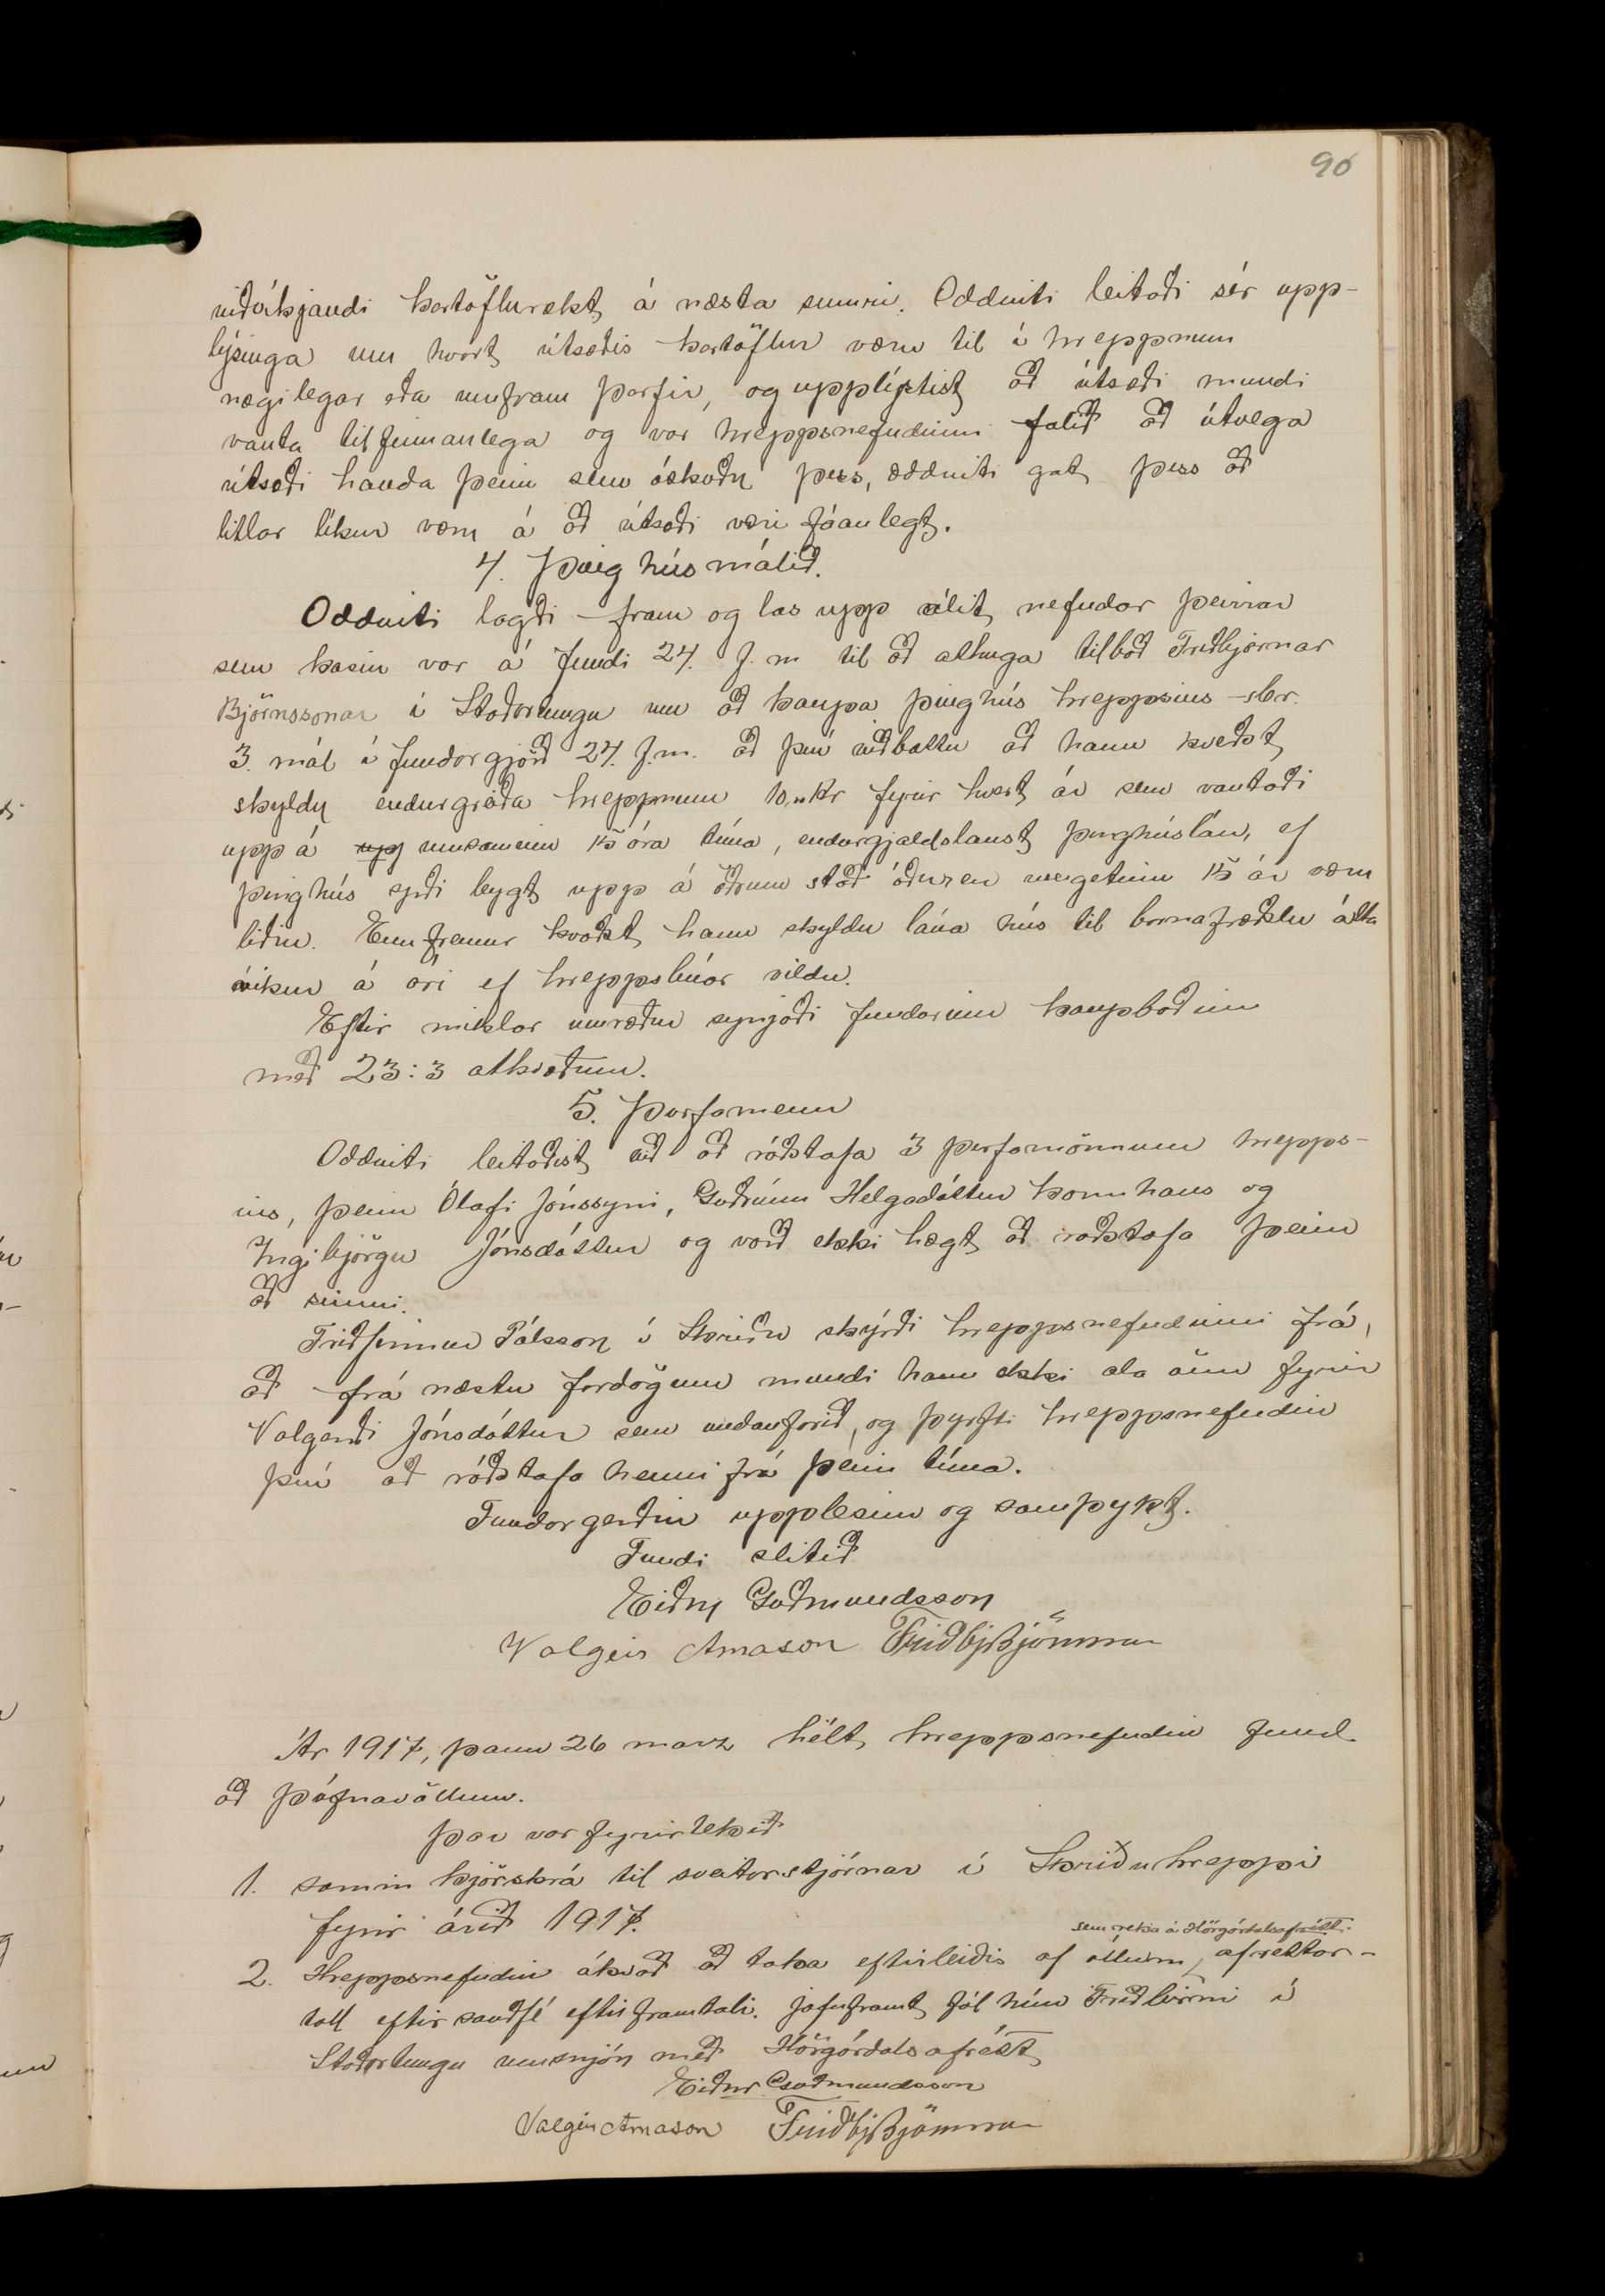 90
viðvíkjandi kartöflurækt á næsta sumri. Oddviti leitaði sér upp-
lýsinga um hvort útsæðis kartöflur væru til í hreppnum
nægilegar eða umfram þarfir, og upplýstist að útsæði mundi
vanta tilfinnanlega og var hreppsnefndinni falið að útvega
útsæði handa þeim sem óskuðu þess, oddviti gat þess að
litlar líkur væru á að útsæði væri fáanlegt.
4. Þinghúsmálið.
Oddviti lagði fram og las upp álit nefndar þeirrar
sem kosin var á fundi 24. f.m til að athuga tilboð Friðbjarnar
Björnssonar í Staðartungu um að kaupa þinghús hreppsins sbr.
3. mál í fundargjörð 24. f.m. að því viðbættu að hann kveðst
skyldu endurgreiða hreppnum 10,00 Kr fyrir hvert ár sem vantaði
upp á upp umsaminn 15 ára tíma, endurgjaldslaust þinghúslán, ef
þinghús yrði bygt upp á öðrum stað áður en umgetinn 15 ár væru
liðin. Ennfremur kvaðst hann skyldu lána hús til barnafræðslu átta
vikur á ári ef hreppsbúar vildu.
Eftir miklar umræður synjaði fundurinn kaupboðinu
með 23:3 atkvæðum.
5. Þurfamenn
Oddviti leitaðist við að ráðstafa 3 þurfamönnum hrepps-
ins, þeim Ólafi Jónssyni, Guðrúnu Helgadóttur konu hans og
Ingibjörgu Jónsdóttur og varð ekki hægt að ráðstafa þeim
að sinni.
Friðfinnur Pálsson í Skriðu skýrði hreppsnefndinni frá,
að frá næstu fardögum mundi hann ekki ala önn fyrir
Valgerði Jónsdóttur sem undanfarið, og þyrfti hreppsnefndin
því að ráðstafa henni frá þeim tíma.
Fundargerðin upplesin og samþykt.
Fundi slitið
Eiður Guðmundsson
Valgeir Árnason Friðbj Björnsson
Ár 1917, þann 26 marz hélt hreppsnefndin fund
að Þúfnavöllum.
Þar var fyrirtekið
1. samin kjörskrá til sveitarstjórnar í Skriðuhreppi
fyrir árið 1917.
sem reka á Hörgárdalsafrétt.
2. Hreppsnefndin ákvað að taka eftirleiðis af öllum, afréttar-
toll eftir sauðfé eftir framtali. Jafnframt fól hún Friðbirni í
Staðartungu umsjón með Hörgárdalsafrétt
Eiður Guðmundsson
Valgeir Árnason Friðbj Björnsson